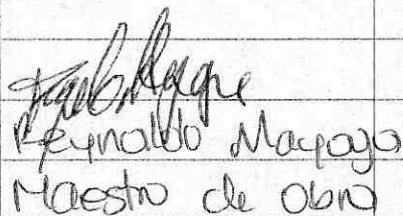 Reynaldo Mayoga
Maestro de obra